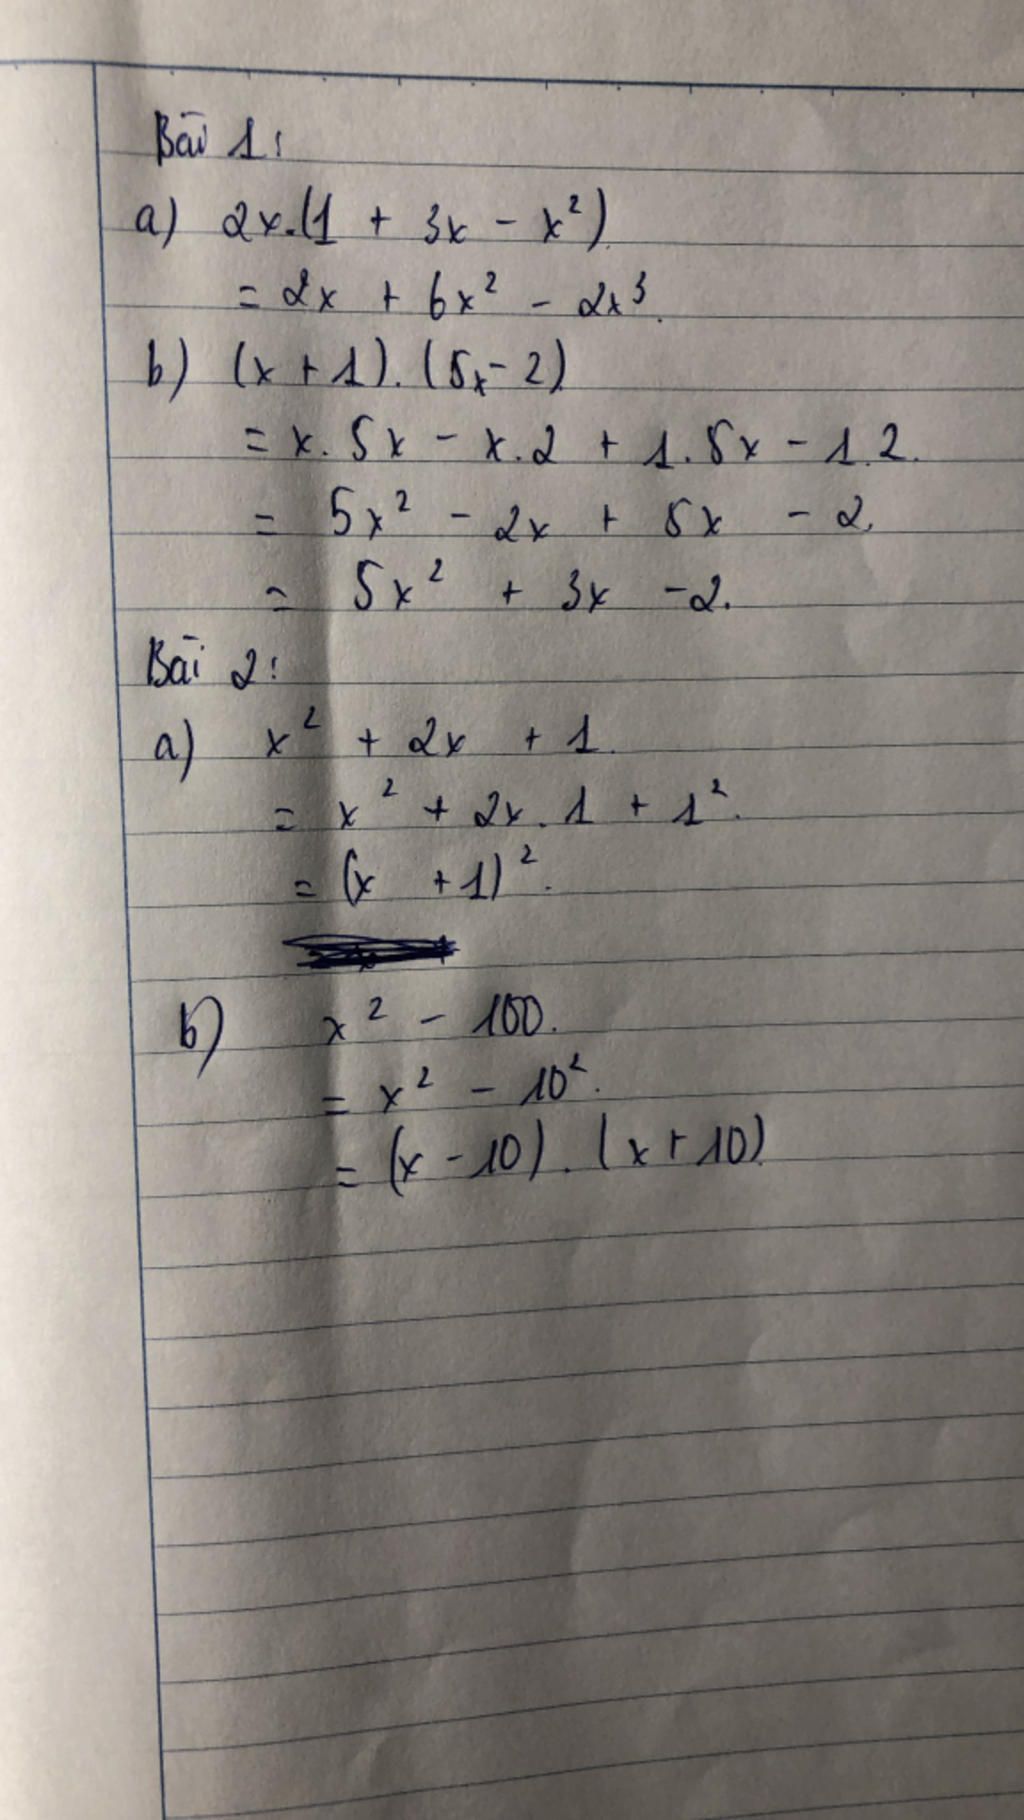 Bài 1:
a) 2x.(1 + 3x - x²)
= 2x + 6x² - 2x³.
b) (x + 1).(5x - 2)
= x.5x - x.2 + 1.5x - 1.2.
= 5x² - 2x + 5x - 2.
= 5x² + 3x - 2.
Bài 2:
a) x² + 2x + 1.
= x² + 2x.1 + 1².
= (x + 1)².
b) x² - 100.
= x² - 10².
= (x - 10).(x + 10)